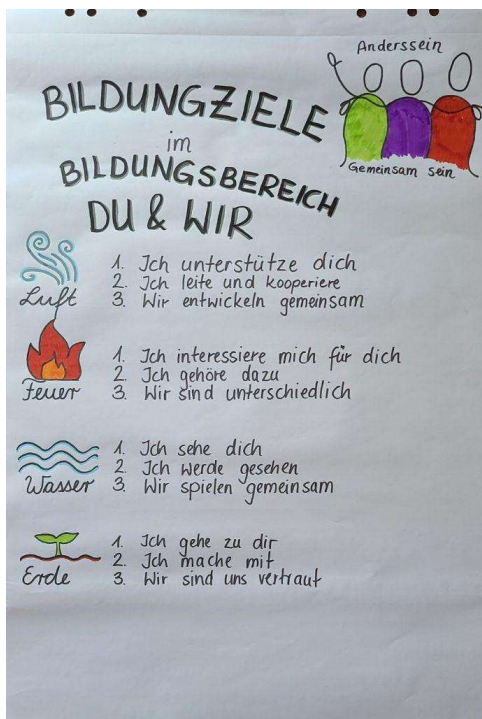 Anderssein
Gemeinsam sein
BILDUNGZIELE
im
BILDUNGSBEREICH
DU & WIR
Luft
1. Ich unterstütze dich
2. Ich leite und kooperiere
3. Wir entwickeln gemeinsam
Feuer
1. Ich interessiere mich für dich
2. Ich gehöre dazu
3. Wir sind unterschiedlich
Wasser
1. Ich sehe dich
2. Ich werde gesehen
3. Wir spielen gemeinsam
Erde
1. Ich gehe zu dir
2. Ich mache mit
3. Wir sind uns vertraut